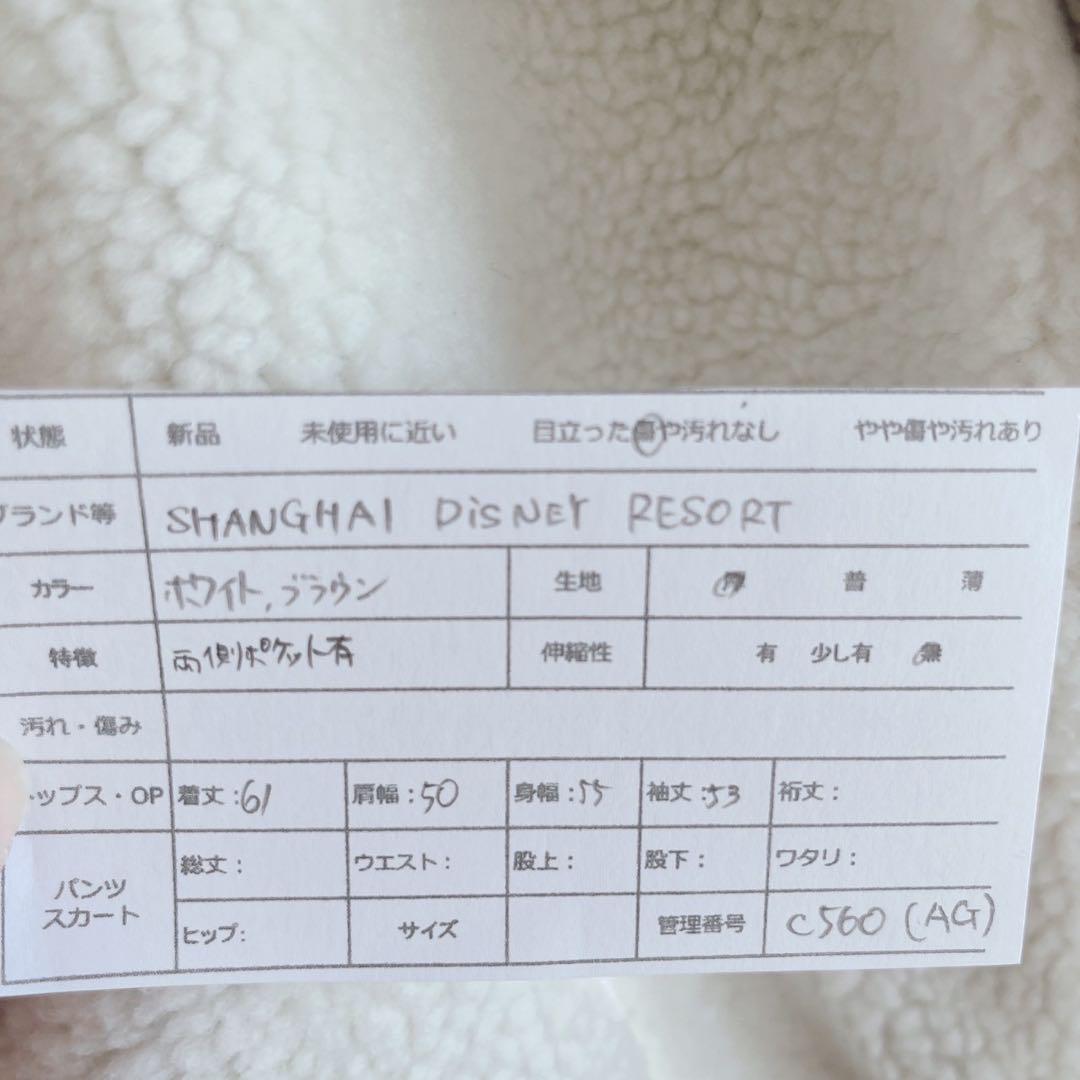 状態 新品 未使用に近い 目立った傷や汚れなし やや傷や汚れあり
ブランド等 SHANGHAI DisNEY RESORT
カラー ホワイト,ブラウン 生地 厚 普 薄
特徴 両側ポケット有 伸縮性 有 少し有 無
汚れ・傷み
トップス・OP 着丈:61 肩幅:50 身幅:55 袖丈:53 裄丈:
パンツ 総丈: ウエスト: 股上: 股下: ワタリ:
スカート ヒップ: サイズ 管理番号 C560 (AG)